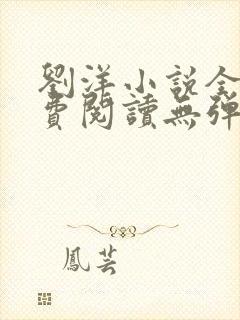 劉洋小説全
費閱讀無彈
鳳芸